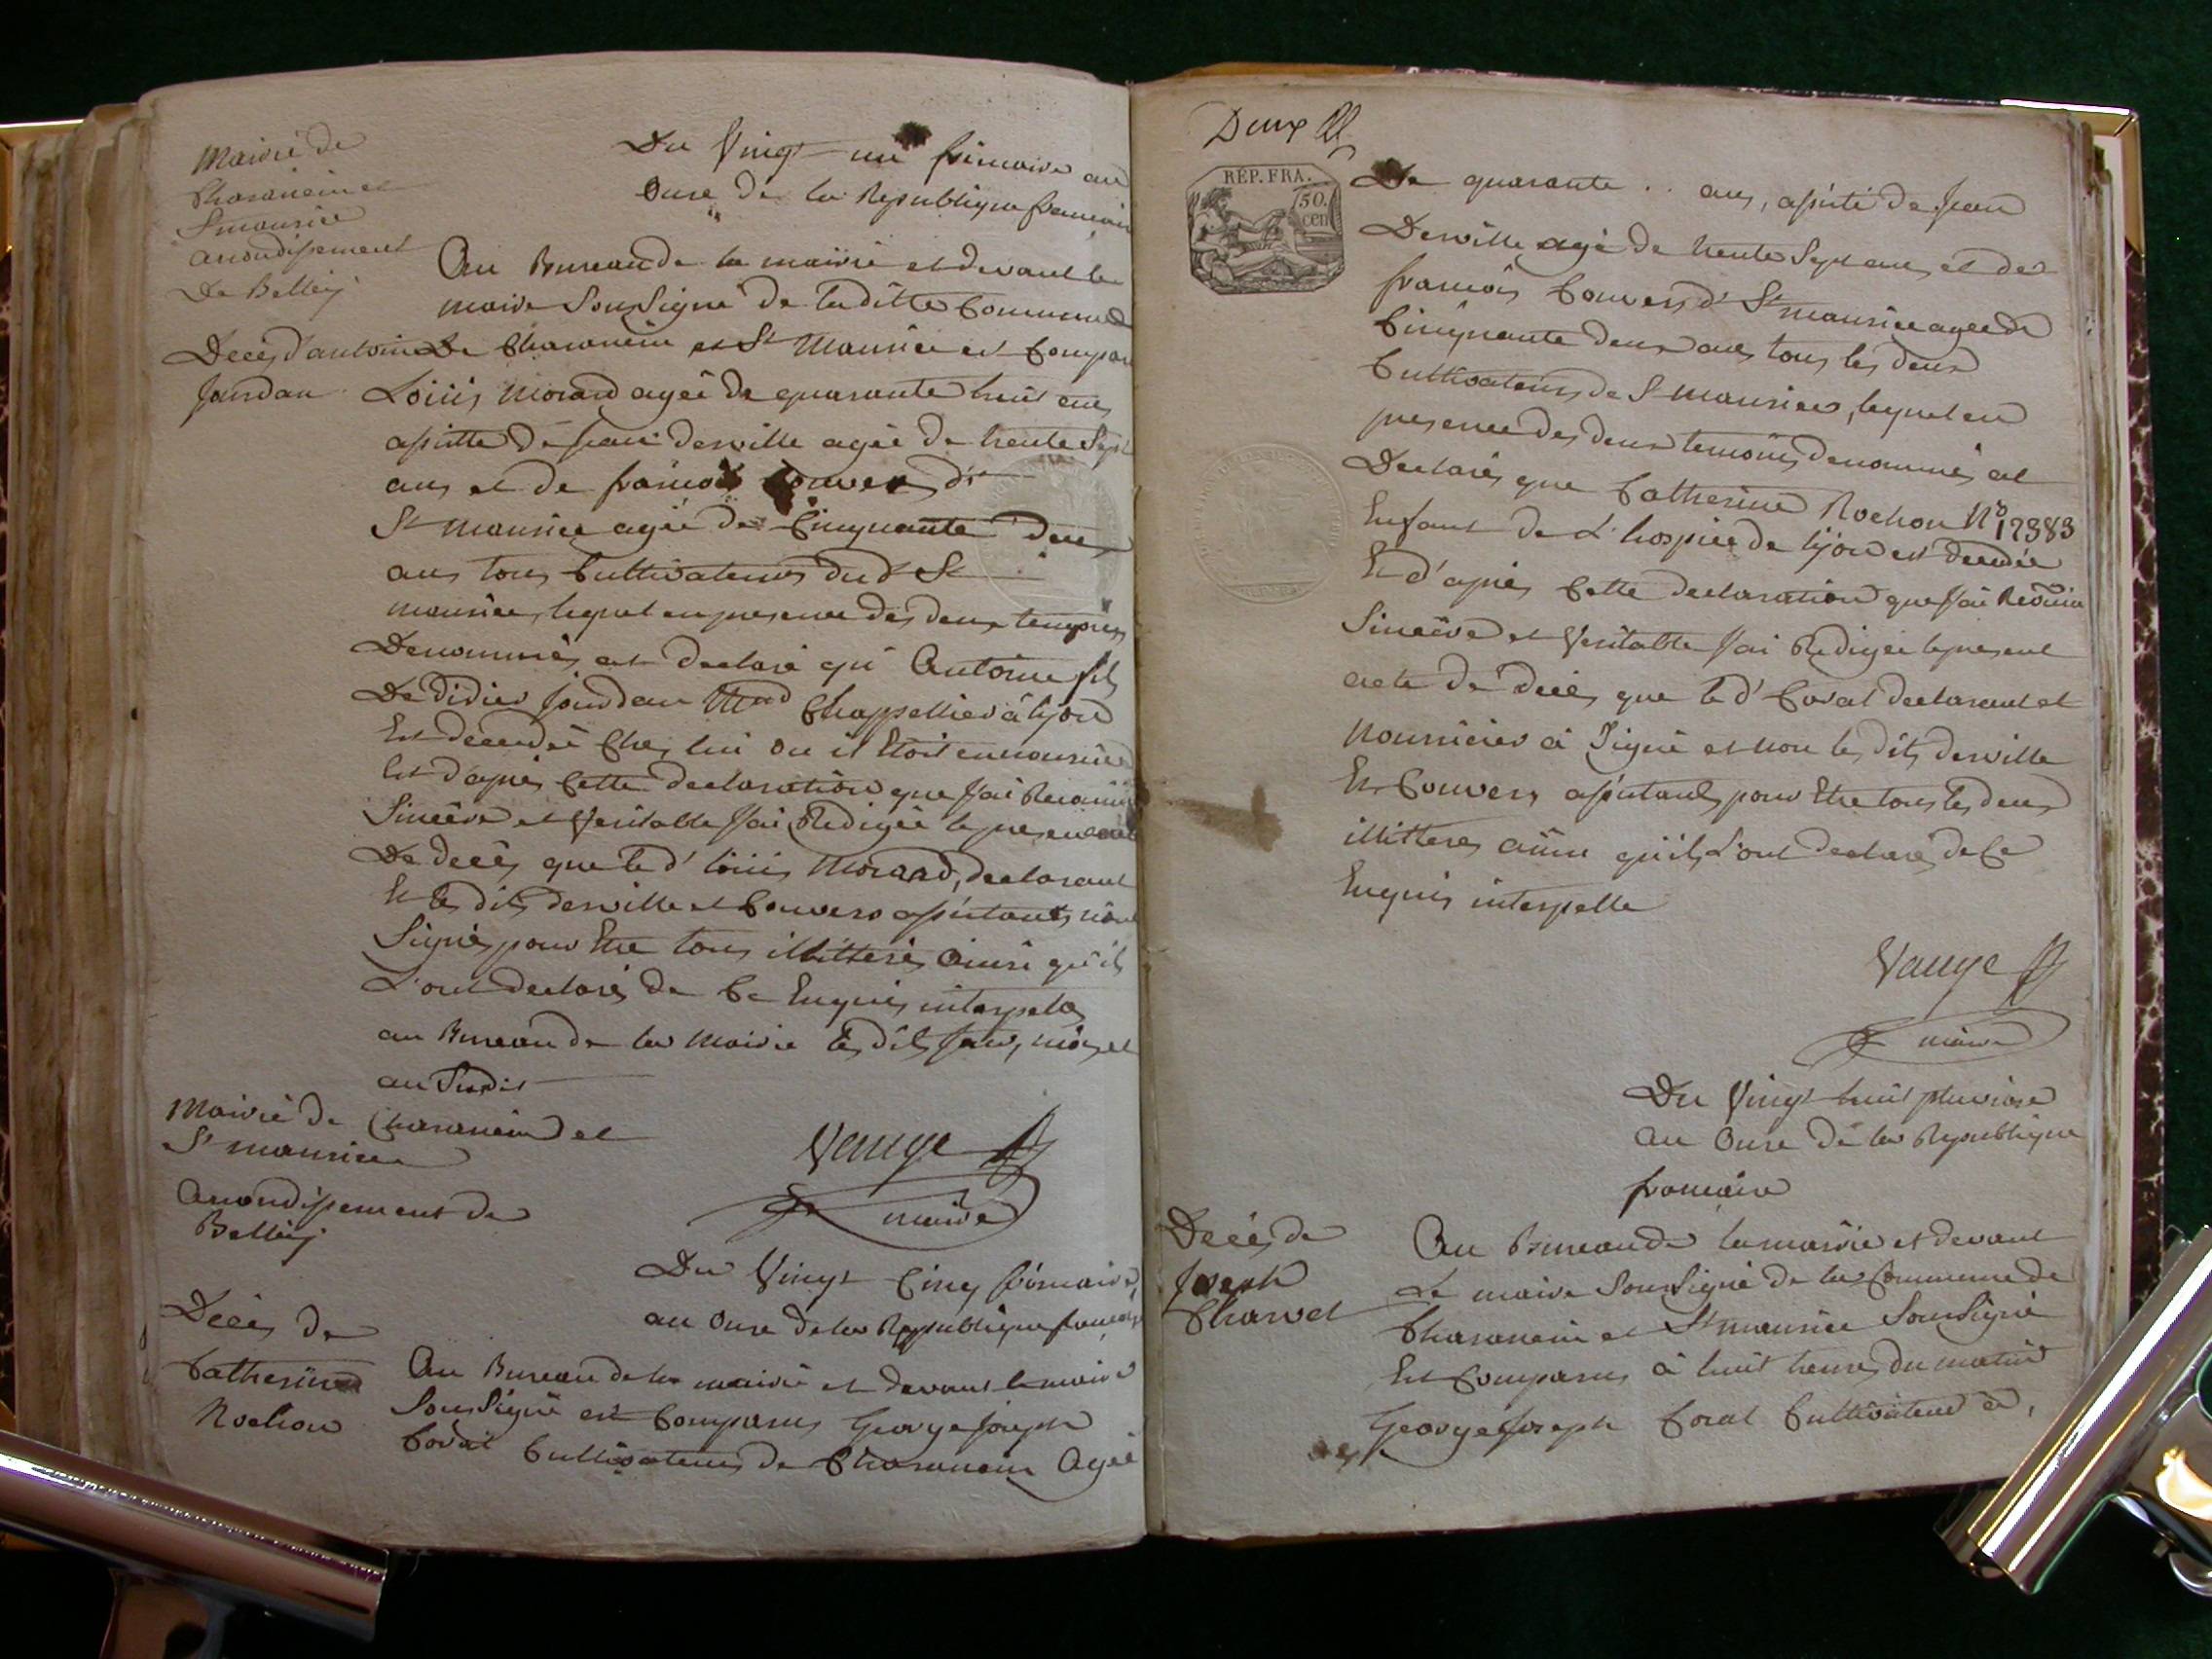 Mairie de
Charancin et
St maurice
arrondissement
De Belley
Du Vingt un frimaire an
Onze de la Republique francais
Au Bureau de la mairie et devant le
maire Soussigné de laditte Commune
Decès d'antoine
Jourdan
De Charancin et St Maurice est Compar
Loüis Morard agée de quarante huit ans
assistté de Jean derville agée de trente Sept
ans et de francois Convers di
St maurice agée de Cinquante deux
ans tous Cultivateurs dud St
maurice, lequel en presence des deux temoins
Denommés at declaré qu'Antoine fils
De Didier Jourdan Mard Chappellier à lyon
Est décendé Chez lui ou il Etoit en nourrice
Et d'après Cette declaration que J'ai Reconnu
Sincère et Veritable J'ai Redigée le present acte
De decès que le d' loüis Morard, declarant
Et les dits derville et Convers assistants n'ont
Signés pour Etre tous illitterés Ainsi qu'ils
L'ont declarés de Ce Enquis interpellés
au Bureau de la Mairie les dits Jour, mois et
an Susdit
Vauge
maire
Mairie de Charancin et
St maurice
Arrondissement de
Belley
Du Vingt Cinq frimaire
an Onze de la Republique francaise
Decès de
Catherine
Rochon
Au Bureau de la mairie et devant le maire
Sousigné est Comparus George Joseph
Corat Cultivateur de Charancin Agé
Deux
RÉP. FRA.
50.
cen
De quarante .. ans, assisté de Jean
Derville agé de trente Sept ans et de
francois Convers d' St maurice agee de
Cinquante deux ans tous les deux
Cultivateurs de St maurice, lequel en
presence des deux temoins denommés at
Declarés que Catherine Rochon No 17383
Enfant de L'hospice de lyon est décedée
Et d'après Cette declaration que J'ai Reconnu
Sincère et Veritable J'ai Redigée le present
acte de decès que le d' Corat declarant et
Nourricier à Signé et non les dits derville
Et Convers assistants pour Etre tous les deux
illitteres ainsi qu'ils L'ont declaré de Ce
Enquis interpelle
Vauge
maire
Du Vingt huit pluviose
an Onze de la Republique
francaise
Decès de
Joseph
Charvet
Au Bureau de la mairie et devant
Le maire Sousigné de la Commune de
Charancin et St maurice Sousigné
Est Comparus à huit heures du matin
George Joseph Corat Cultivateur à,